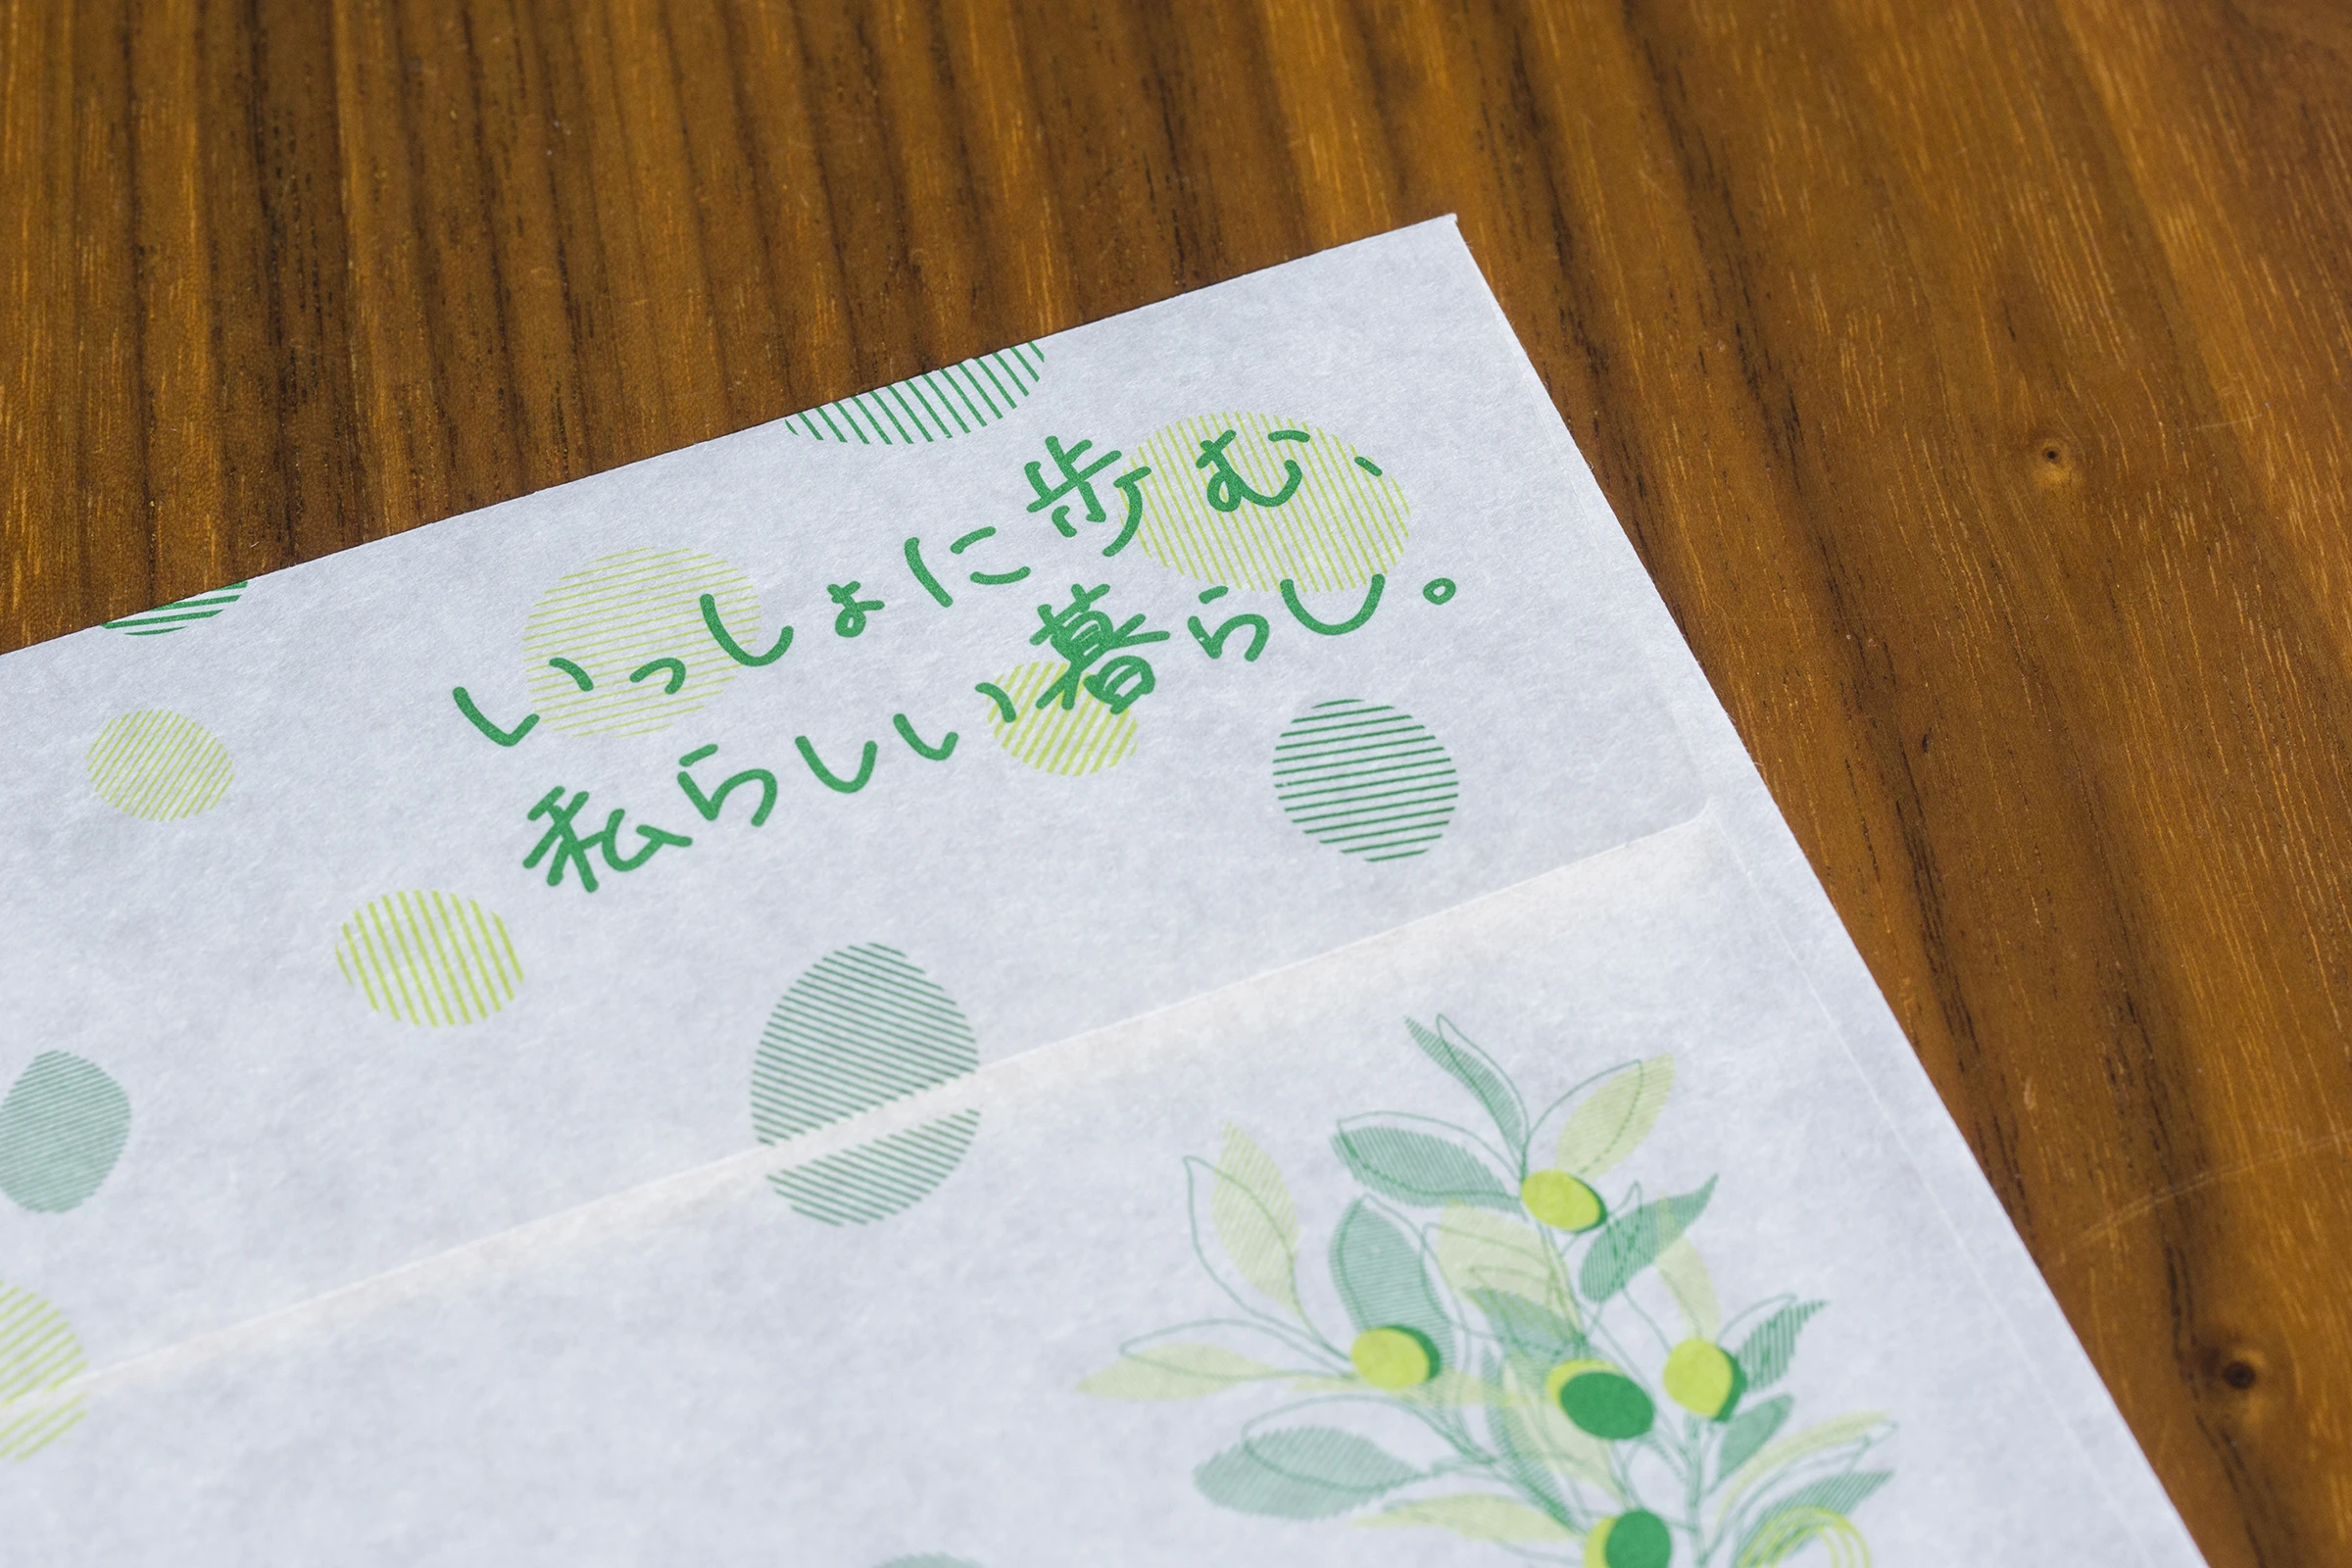 いっしょに歩む、
私らしい暮らし。